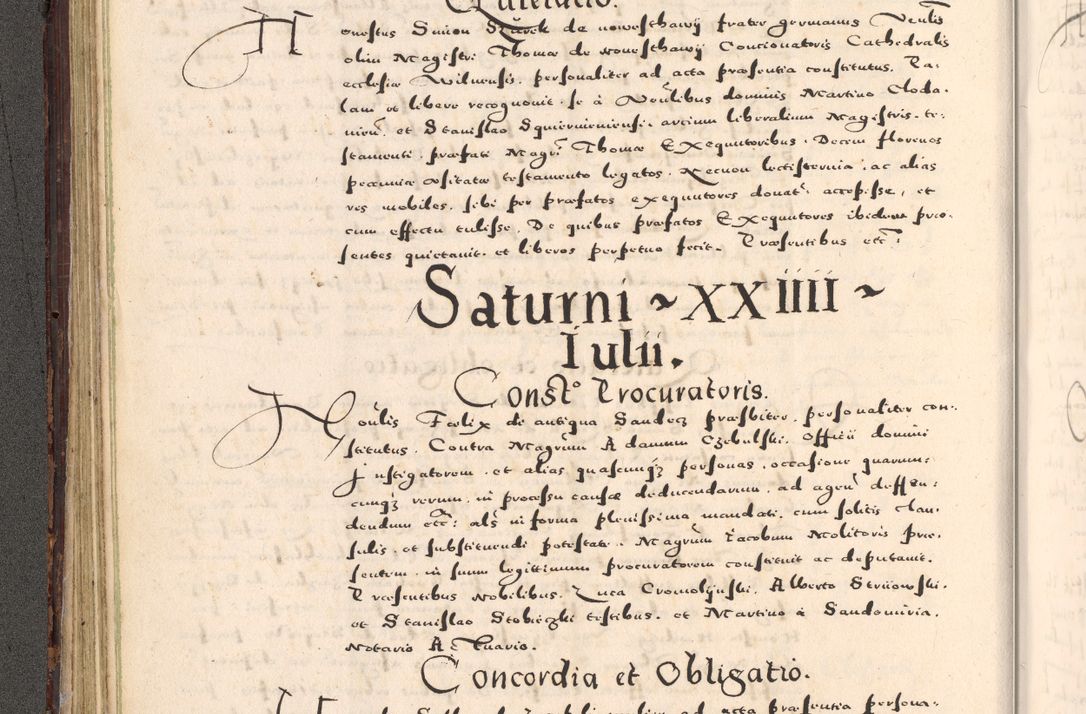 Quietatio.
Honestus Simon Zurek de nowosthawÿ frater germanus Venlis
olim Magistri Thomæ de wowsthawÿ Concionatoris Cathedralis
ecclesiæ Wilnensis. personaliter ad acta præsentia constitutus. Pa-
lam et libere recognouit. se à Venlibus dominis Martino Cloda.
et Stanislao Squierninensi. artium liberalium Magistris. te-
stamenti. præfati Magri Thomæ Exequutoribus. Decem florenos
pecuniæ testamento legatos. Necnon lectisternia. ac alias
res mobiles. sibi per præfatos exequutores donat. accepisse, et
cum effectu tulisse. De quibus præfatos Exequutores ibidem præ-
sentes quietauit. et liberos perpetuo fecit. Præsentibus etc:
Saturni ~ XXIIII ~
Iulii.
Const° Procuratoris.
Noblis Fælix de antiqua Sandecz præsbiter. personaliter con-
stitutus. Contra Magrum Adamum Czebulski. Officii domini
Instigatorem. et alias quascunqz personas. occasione quarum-
cunqz rerum. in processu causæ deducendarum. ad agen deffen-
dendum etc: als in forma plenissima mandati. cum solitis clau-
sulis. et substituendi potestate. Magrum Iacobum Molitoris præ-
sentem. in suum legittimum procuratorem constituit ac deputauit.
Præsentibus Nobilibus. Luca Cromolÿnski. Alberto Striiowski.
et Stanislao Stobieczki testibus. et Martino à Sandomiria.
Notario Actuario.
Concordia et Obligatio.
ad acta præsentia persona-